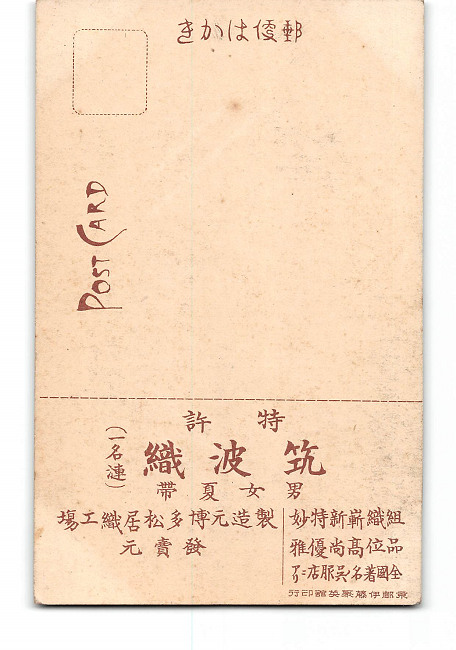 郵便はかき
POST CARD
特許
筑波織
(一名漣)
男女夏帶
組織嶄新特妙
品位高尚優雅
全國著名呉服店ニアリ
製造元博多松居織工場
發賣元
伊藤聚英館印行